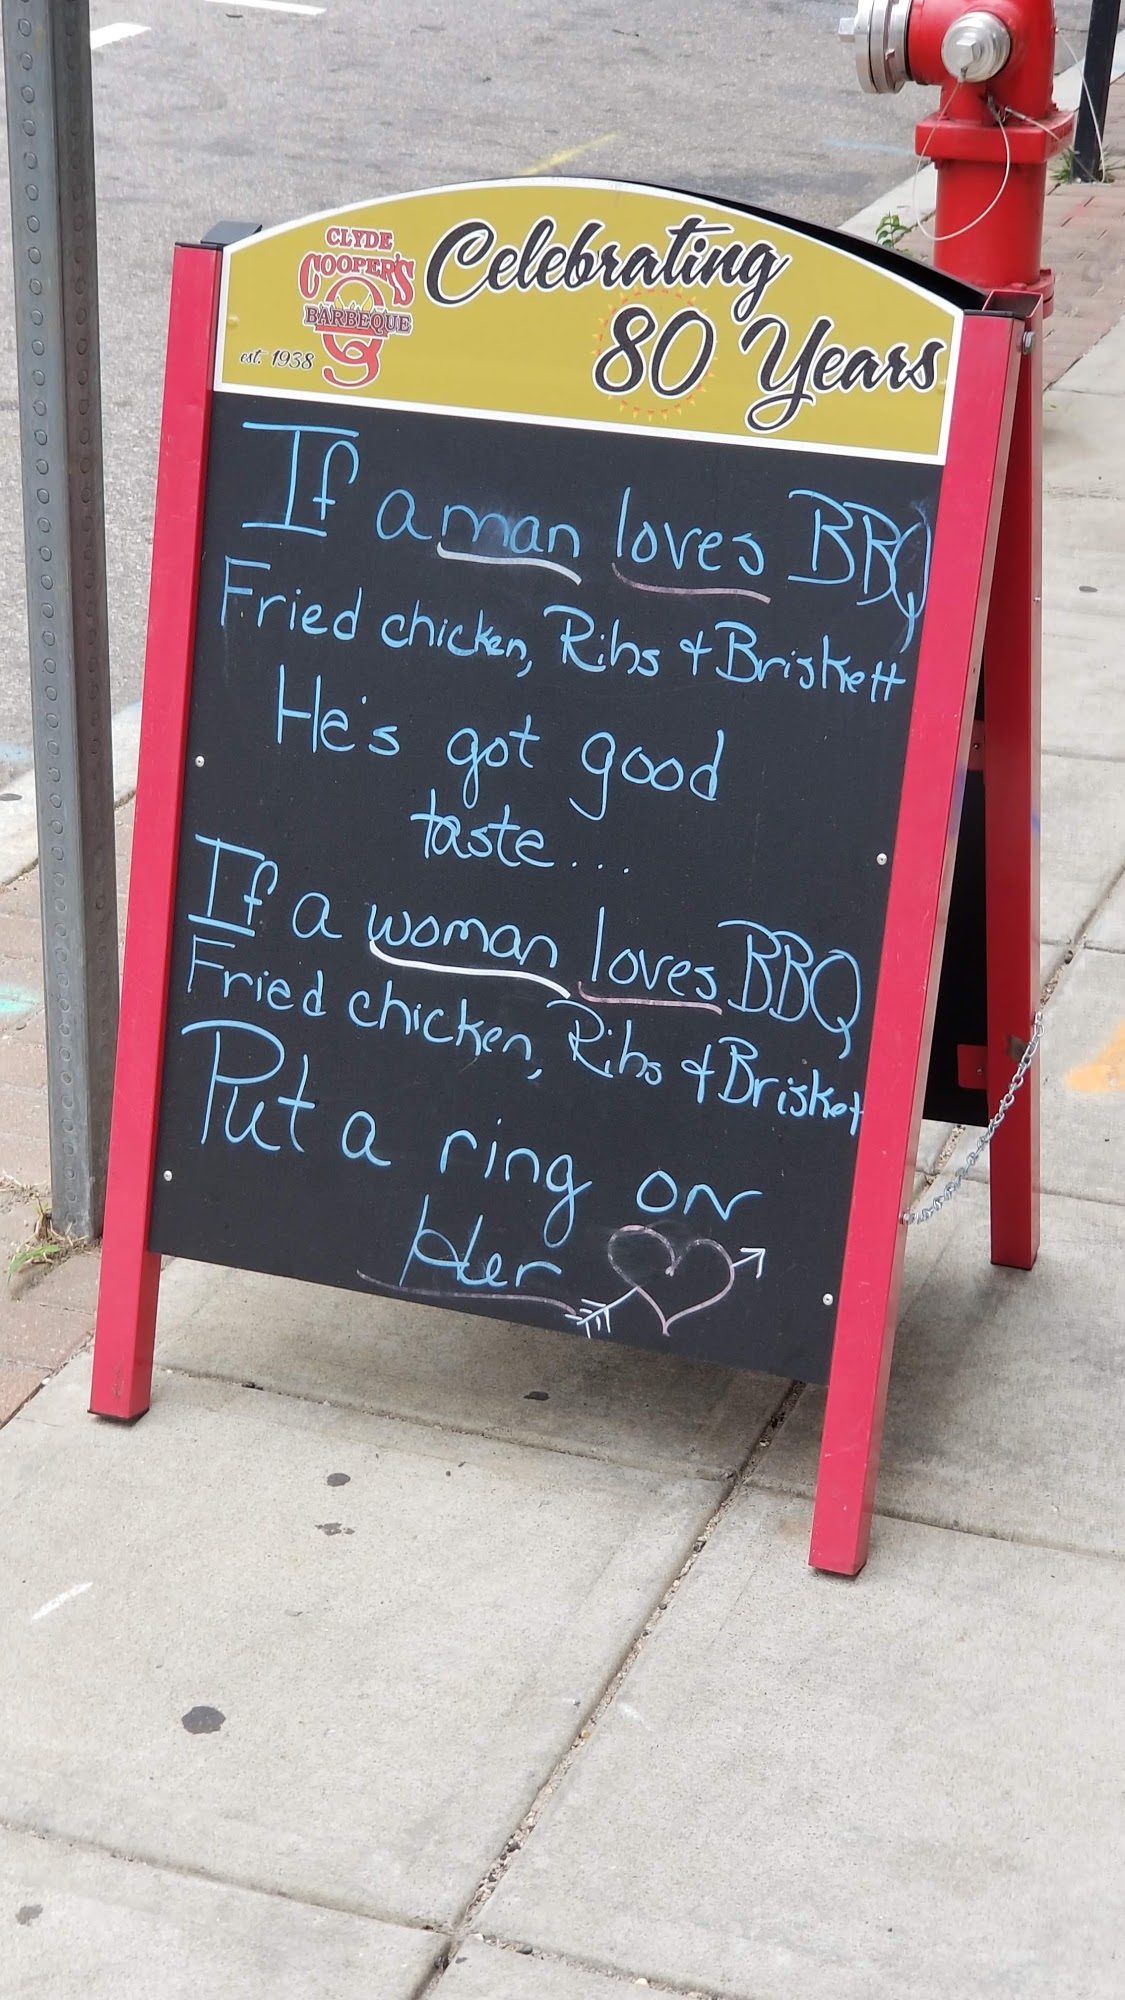 CLYDE
COOPER'S
BARBEQUE
est. 1938
Celebrating
80 Years
If a man loves BBQ
Fried chicken, Ribs + Briskett
He's got good
taste...
If a woman loves BBQ
Fried chicken, Ribs + Brisket
Put a ring on
Her